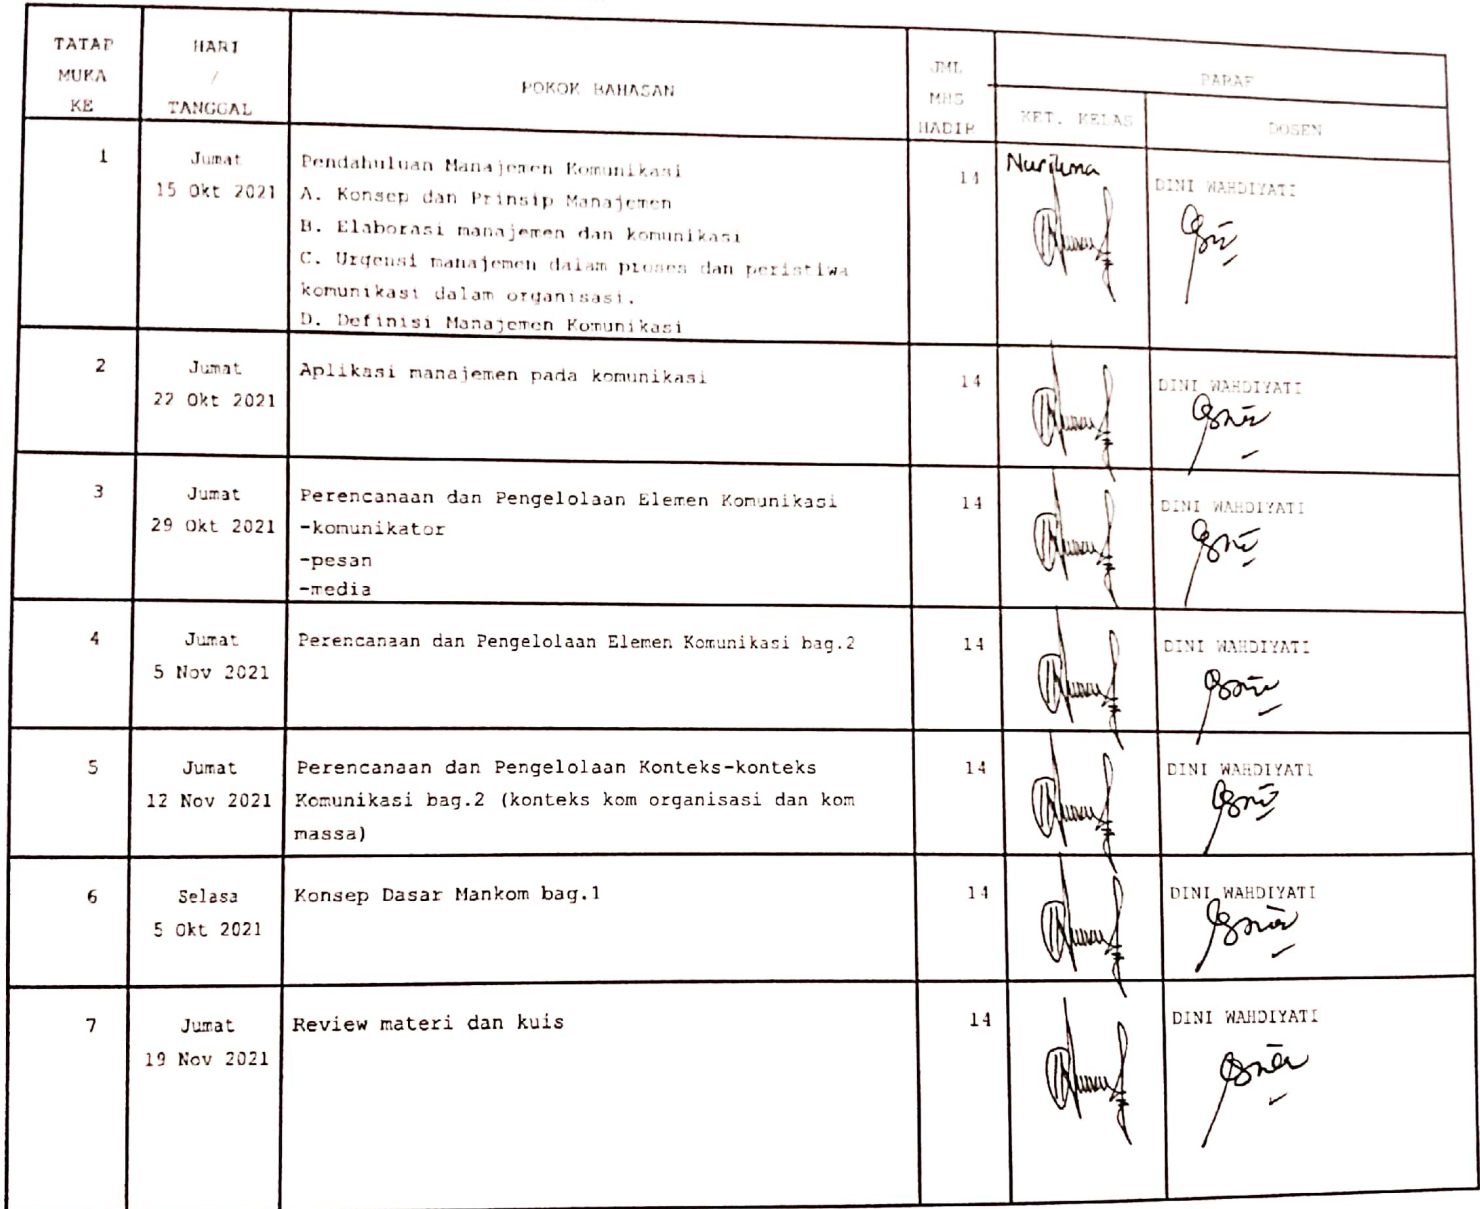 TATAP MUKA KE
HARI / TANGGAL
POKOK BAHASAN
JML MHS HADIR
PARAF
KET. KELAS
DOSEN
1
Jumat
15 Okt 2021
Pendahuluan Manajemen Komunikasi
A. Konsep dan Prinsip Manajemen
B. Elaborasi manajemen dan komunikasi
C. Urgensi manajemen dalam proses dan peristiwa
komunikasi dalam organisasi.
D. Definisi Manajemen Komunikasi
14
DINI WAHDIYATI
2
Jumat
22 Okt 2021
Aplikasi manajemen pada komunikasi
14
DINI WAHDIYATI
3
Jumat
29 Okt 2021
Perencanaan dan Pengelolaan Elemen Komunikasi
-komunikator
-pesan
-media
14
DINI WAHDIYATI
4
Jumat
5 Nov 2021
Perencanaan dan Pengelolaan Elemen Komunikasi bag.2
14
DINI WAHDIYATI
5
Jumat
12 Nov 2021
Perencanaan dan Pengelolaan Konteks-konteks
Komunikasi bag.2 (konteks kom organisasi dan kom
massa)
14
DINI WAHDIYATI
6
Selasa
5 Okt 2021
Konsep Dasar Mankom bag.1
14
DINI WAHDIYATI
7
Jumat
19 Nov 2021
Review materi dan kuis
14
DINI WAHDIYATI